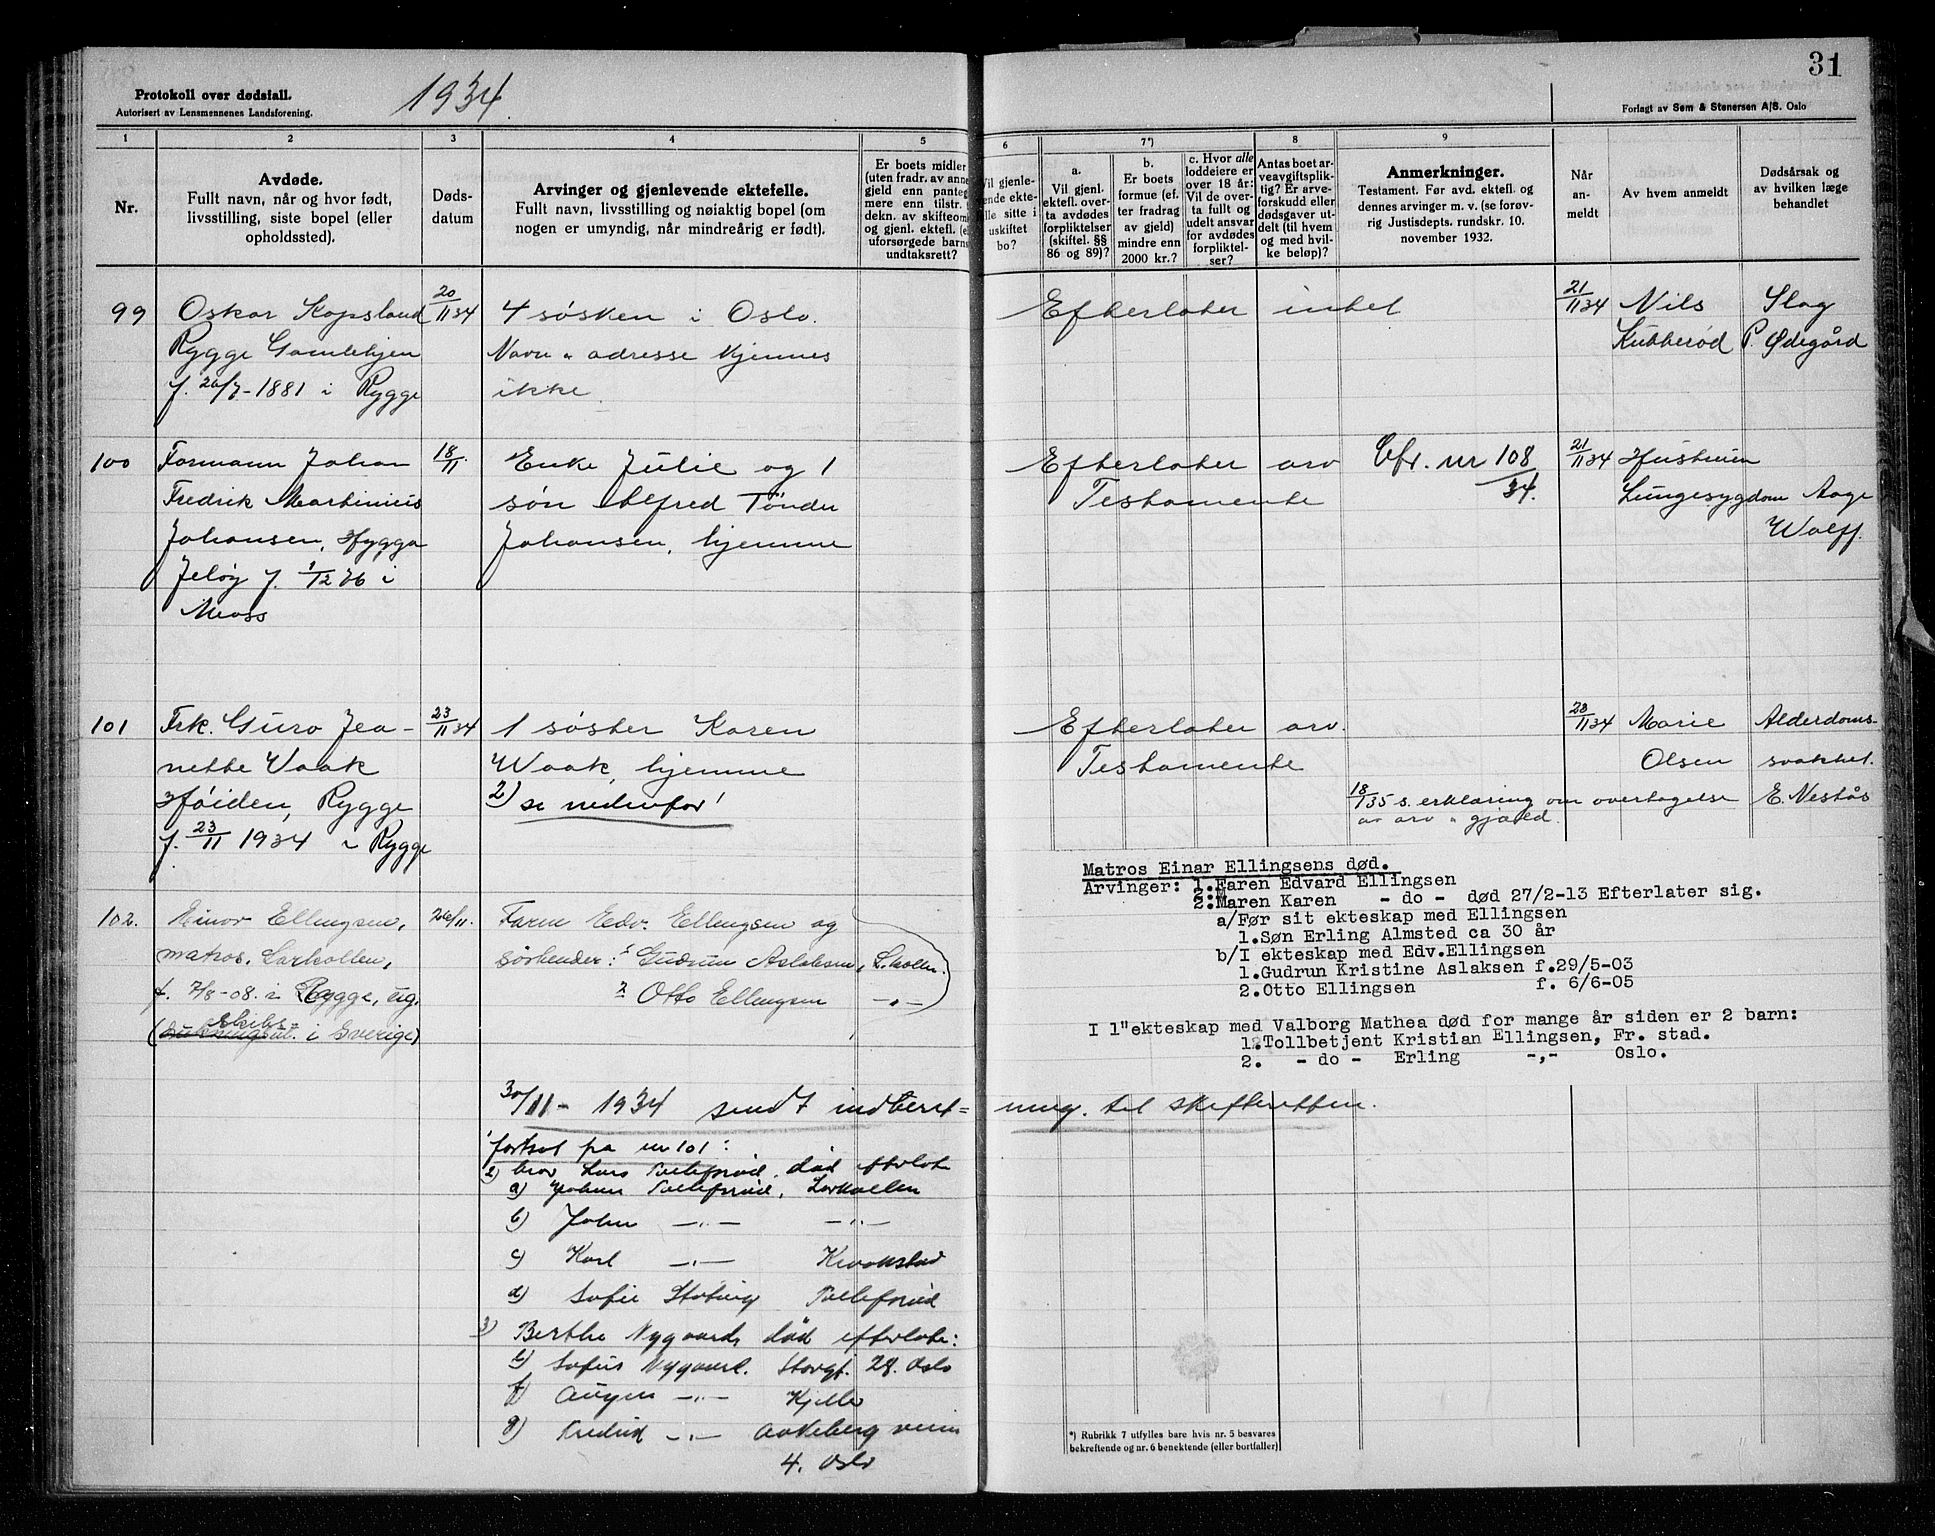 31
Protokoll over dødsfall.
Autorisert av Lensmennenes Landsforening.
1934.
Forlagt av Søm & Stenersen A/S. Oslo
1 2 3 4 5 6 7*) 8 9
Nr.
Avdøde.
Fullt navn, når og hvor født,
livsstilling, siste bopel (eller
opholdssted).
Døds-
datum
Arvinger og gjenlevende ektefelle.
Fullt navn, livsstilling og nøiaktig bopel (om
nogen er umyndig, når mindreårig er født).
Er boets midler
(uten fradr. av anne
gjeld enn panteg
mere enn tilstr. t
dekn. av skifteomk
og gjenl. ektefl. (el
uforsørgede barns
undtaksrett?
Vil gjenle-
ende ekte-
lle sitte i
uskiftet
bo?
a.
Vil gjenl.
ektefl. over-
ta avdødes
forpliktelser
(skiftel. §§
86 og 89)?
b.
Er boets
formue (ef-
ter fradrag
av gjeld)
mindre enn
2000 kr.?
c. Hvor alle
loddeiere er
over 18 år:
Vil de over-
ta fullt og
udelt ansvar
for avdødes
forpliktel-
ser?
Antas boet ar-
veavgiftsplik-
tig? Er arve-
forskudd eller
dødsgaver ut-
delt (til hvem
og med hvil-
ke beløp)?
Anmerkninger.
Testament. Før avd. ektefl. og
dennes arvinger m. v. (se forøv-
rig Justisdepts. rundskr. 10.
november 1932.
Når
an-
meldt
Av hvem anmeldt
Dødsårsak og
av hvilken læge
behandlet
99 Oskar Kopsland 20/11 34 4 søsken i Oslo. Efterlater intet 21/11 34 Nils Slag
Rygge Gamlehjem Navn & adresse kjennes Kubberød P. Ødegård
f. 26/7-1881 i Rygge ikke.
100 Formann Johan 18/11. Enke Julie og 1 Efterlater arv Cfr. nr 108/34. 21/11 34 Hustruen
Fredrik Marthinius søn Alfred Tønder Testamente Lungesygdom Aage
Johansen, Hygga Johansen, hjemme Wolff.
Jeløy f. 1/12 76 i
Moss
101 Frk. Guro Jea- 23/11 34 1 søster Karen Efterlater arv. 23/11 34 Marie Alderdoms-
nette Waak Waak, hjemme Testamente Olsen svakhet.
Høiden, Rygge 2) se nedenfor! 18/1 35 s. erklæring om overtagelse E. Nestås
f. 23/11 1934 i Rygge av arv & gjæld.
Matros Einar Ellingsens død.
Arvinger: 1. Faren Edvard Ellingsen
2. Maren Karen - do - død 27/2-13 Efterlater sig.
a/Før sit ekteskap med Ellingsen
1. Søn Erling Almsted ca 30 år
b/I ekteskap med Edv.Ellingsen
1. Gudrun Kristine Aslaksen f.29/5-03
2. Otto Ellingsen f. 6/6-05
I 1" ekteskap med Valborg Mathea død for mange år siden er 2 barn:
1. Tollbetjent Kristian Ellingsen, Fr. stad.
2. - do - Erling -,- Oslo.
102. Einar Ellingsen, 26/11. Faren Edv. Ellingsen og
matros, Larkollen, søskender: 1 Gudrun Aslaksen, L.kollen.
f. 7/8-08. i Rygge, ug. 2 Otto Ellingsen -"-
(Skibs- i Sverige)
30/11- 1934 sendt indberet= ning. til skifteretten.
fortsat fra nr 101:
2) bror Lars Tollefsrød, død efterlot
a) Johan Tollefsrød, Larkollen
b) John -"- -"-
c) Karl -"- Krokstad
d) Sofie Tollefsrød
3) Berthe Nygaard, død efterlot:
e) Sofus Nygaard. Storgt. 28. Oslo
f) -"- Kjeller
g) Fredrik -"-
4. Oslo
*) Rubrikk 7 utfylles bare hvis nr. 5 besvares
bekreftende og nr. 6 benektende (eller bortfaller)